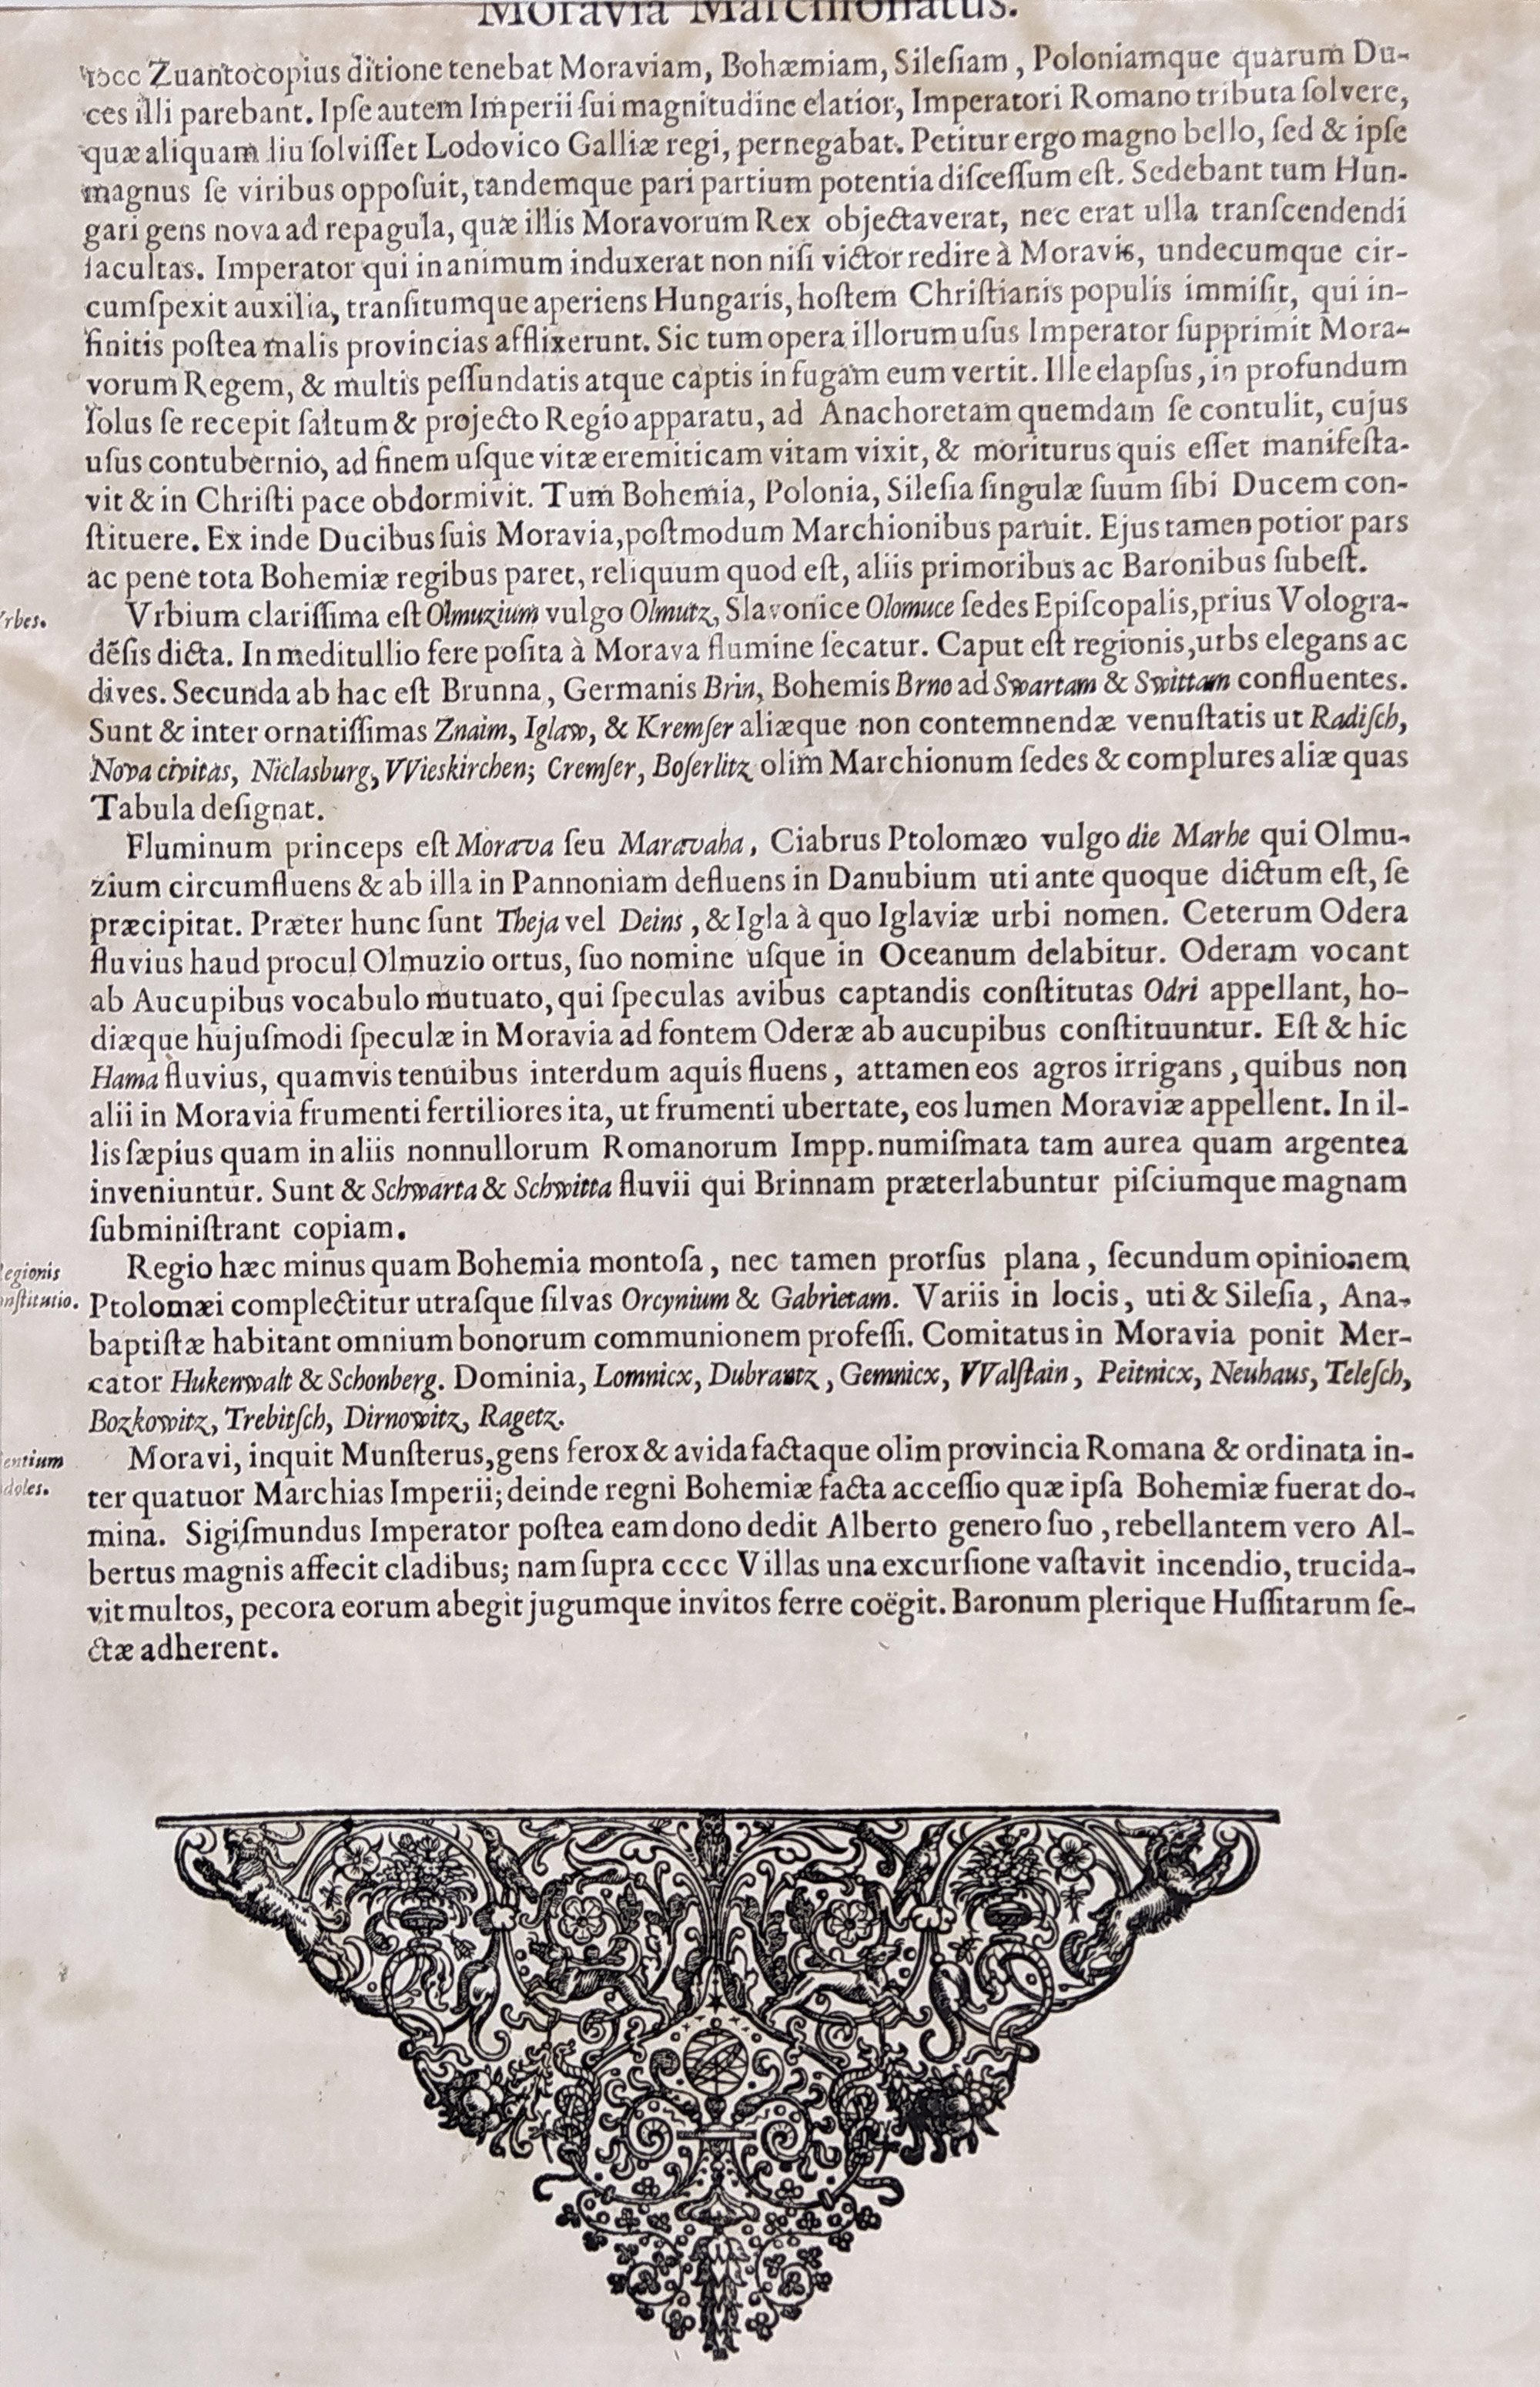 Moravia Marchionatus.
Zuantocopius ditione tenebat Moraviam, Bohæmiam, Sileſiam, Poloniamque quarum Du-
ces illi parebant. Ipſe autem Imperii ſui magnitudine elatior, Imperatori Romano tributa ſolvere,
quæ aliquam diu ſolviſſet Lodovico Galliæ regi, pernegabat. Petitur ergo magno bello, ſed & ipſe
magnus ſe viribus oppoſuit, tandemque pari partium potentia diſceſſum eſt. Sedebant tum Hun-
gari gens nova ad repagula, quæ illis Moravorum Rex objectaverat, nec erat ulla tranſcendendi
facultas. Imperator qui in animum induxerat non niſi victor redire à Moravis, undecumque cir-
cumſpexit auxilia, tranſitumque aperiens Hungaris, hoſtem Chriſtianis populis immiſit, qui in-
finitis poſtea malis provincias afflixerunt. Sic tum opera illorum uſus Imperator ſupprimit Mora-
vorum Regem, & multis peſſundatis atque captis in fugam eum vertit. Ille elapſus, in profundum
ſolus ſe recepit ſaltum & projecto Regio apparatu, ad Anachoretam quemdam ſe contulit, cujus
uſus contubernio, ad finem uſque vitæ eremiticam vitam vixit, & moriturus quis eſſet manifeſta-
vit & in Chriſti pace obdormivit. Tum Bohemia, Polonia, Sileſia ſingulæ ſuum ſibi Ducem con-
ſtituere. Ex inde Ducibus ſuis Moravia, poſtmodum Marchionibus paruit. Ejus tamen potior pars
ac pene tota Bohemiæ regibus paret, reliquum quod eſt, aliis primoribus ac Baronibus ſubeſt.
rbes. Vrbium clariſſima eſt Olmuzium vulgo Olmutz, Slavonice Olomuce ſedes Epiſcopalis, prius Vologra-
dēſis dicta. In meditullio fere poſita à Morava flumine ſecatur. Caput eſt regionis, urbs elegans ac
dives. Secunda ab hac eſt Brunna, Germanis Brin, Bohemis Brno ad Swartam & Swittam confluentes.
Sunt & inter ornatiſſimas Znaim, Iglaw, & Kremſer aliæque non contemnendæ venuſtatis ut Radiſch,
Nova civitas, Niclasburg, VVieskirchen; Cremſer, Boſerlitz olim Marchionum ſedes & complures aliæ quas
Tabula deſignat.
Fluminum princeps eſt Morava ſeu Maravaha, Ciabrus Ptolomæo vulgo die Marhe qui Olmu-
zium circumfluens & ab illa in Pannoniam defluens in Danubium uti ante quoque dictum eſt, ſe
præcipitat. Præter hunc ſunt Theja vel Deins, & Igla à quo Iglaviæ urbi nomen. Ceterum Odera
fluvius haud procul Olmuzio ortus, ſuo nomine uſque in Oceanum delabitur. Oderam vocant
ab Aucupibus vocabulo mutuato, qui ſpeculas avibus captandis conſtitutas Odri appellant, ho-
diæque hujuſmodi ſpeculæ in Moravia ad fontem Oderæ ab aucupibus conſtituuntur. Eſt & hic
Hama fluvius, quamvis tenuibus interdum aquis fluens, attamen eos agros irrigans, quibus non
alii in Moravia frumenti fertiliores ita, ut frumenti ubertate, eos lumen Moraviæ appellent. In il-
lis ſæpius quam in aliis nonnullorum Romanorum Impp. numiſmata tam aurea quam argentea
inveniuntur. Sunt & Schwarta & Schwitta fluvii qui Brinnam præterlabuntur piſciumque magnam
ſubminiſtrant copiam.
egionis Regio hæc minus quam Bohemia montoſa, nec tamen prorſus plana, ſecundum opinionem
nſtitutio. Ptolomæi complectitur utraſque ſilvas Orcynium & Gabrietam. Variis in locis, uti & Sileſia, Ana-
baptiſtæ habitant omnium bonorum communionem profeſſi. Comitatus in Moravia ponit Mer-
cator Hukenwalt & Schonberg. Dominia, Lomnicx, Dubrantz, Gemnicx, VValſtain, Peitnicx, Neuhaus, Teleſch,
Bozkowitz, Trebitſch, Dirnowitz, Ragetz.
entium Moravi, inquit Munſterus, gens ferox & avida factaque olim provincia Romana & ordinata in-
doles. ter quatuor Marchias Imperii; deinde regni Bohemiæ facta acceſſio quæ ipſa Bohemiæ fuerat do-
mina. Sigiſmundus Imperator poſtea eam dono dedit Alberto genero ſuo, rebellantem vero Al-
bertus magnis affecit cladibus; nam ſupra cccc Villas una excurſione vaſtavit incendio, trucida-
vit multos, pecora eorum abegit jugumque invitos ferre coëgit. Baronum plerique Huſſitarum ſe-
ctæ adherent.